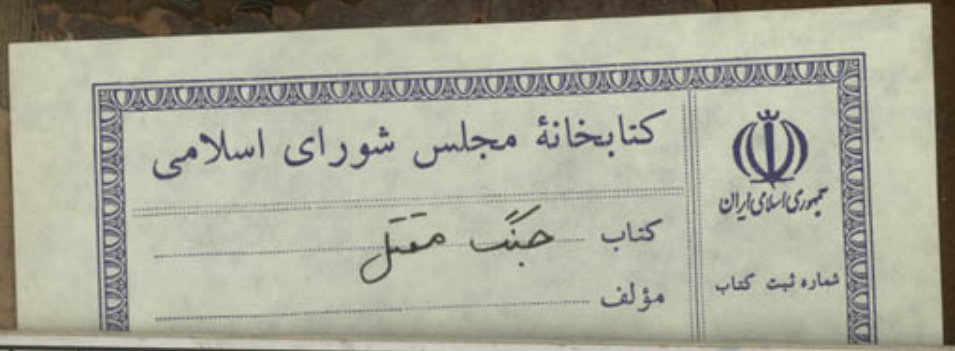 کتابخانهٔ مجلس شورای اسلامی
کتاب جنگ مقتل
مؤلف
جمهوری اسلامی ایران
شماره ثبت کتاب